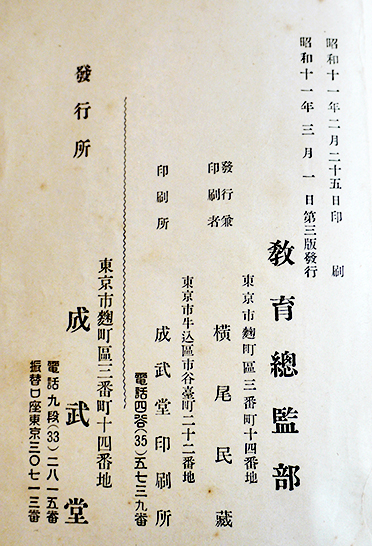 昭和十一年二月二十五日印刷
昭和十一年三月一日第三版發行
教育總監部
東京市麴町區三番町十四番地
發行兼
印刷者
橫尾民藏
東京市牛込區市谷臺町二十二番地
印刷所
成武堂印刷所
電話四谷(35)五七三九番
發行所
東京市麴町區三番町十四番地
成武堂
電話九段(33)二八一五番
振替口座東京三〇七一三番